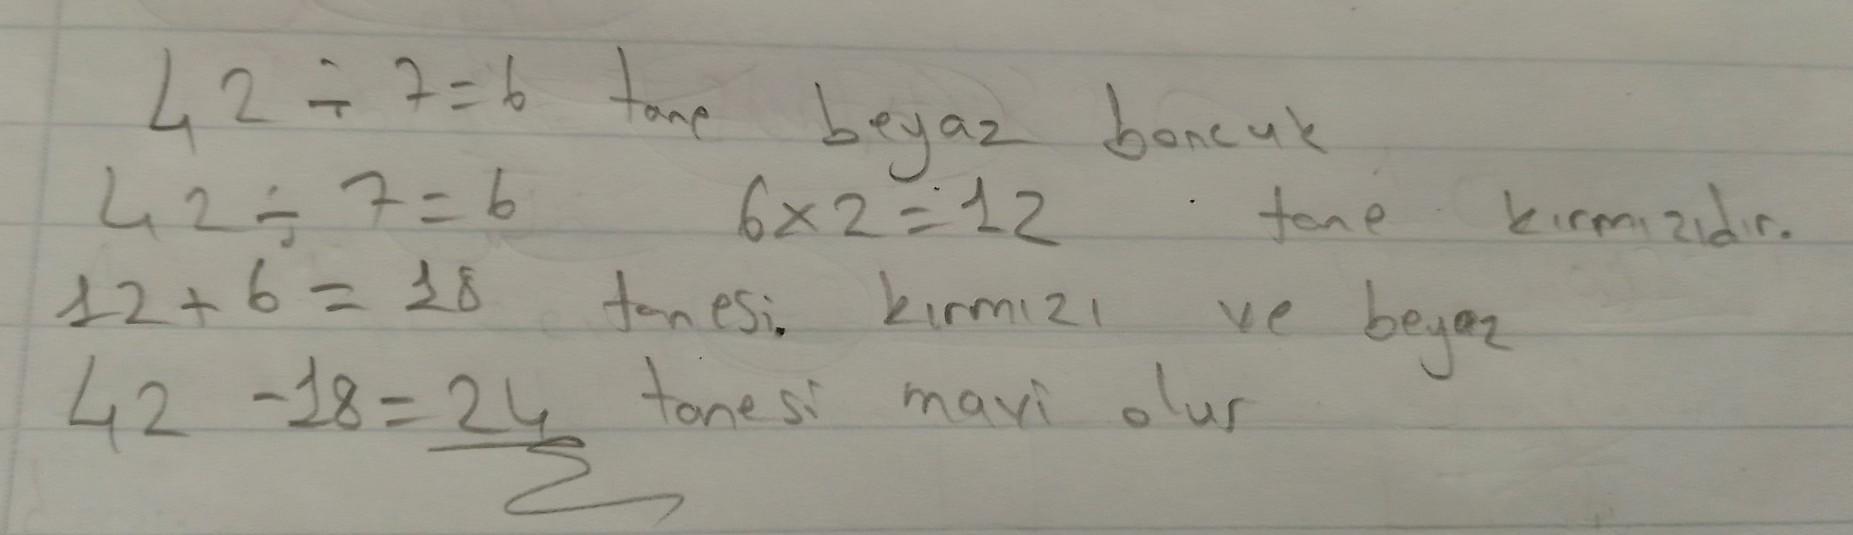 42 ÷ 7 = 6 tane beyaz boncuk
42 ÷ 7 = 6 6x2=12 tane kırmızıdır.
12 + 6 = 18 tanesi kırmızı ve beyaz
42 - 18 = 24 tanesi mavi olur